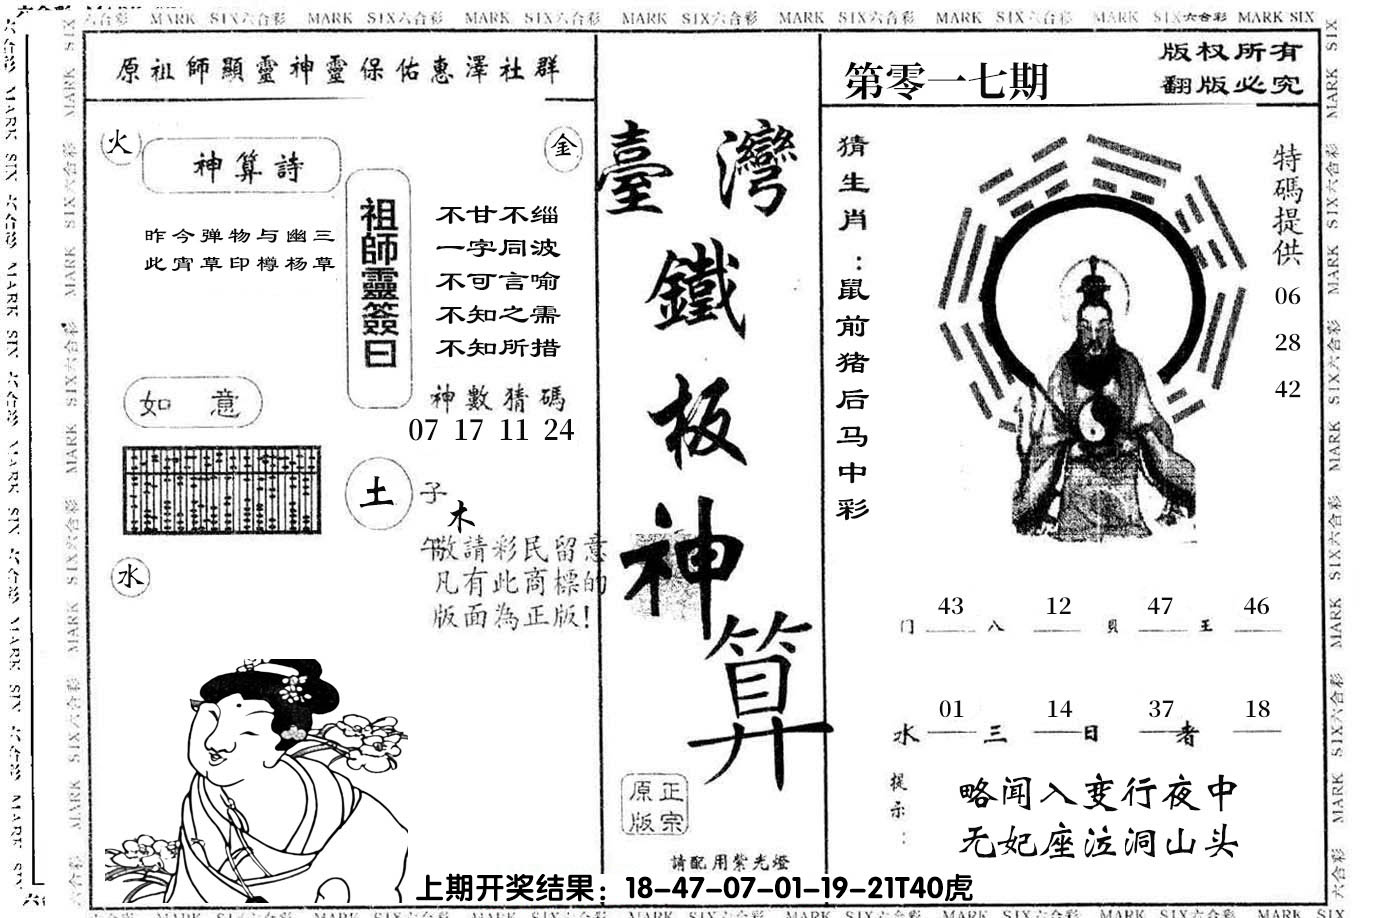 原祖師顯靈神靈保佑惠澤社群
火
金
神算詩
昨今弹物与幽三
此宵草印樽杨草
祖師靈簽曰
不甘不缁
一字同波
不可言喻
不知之需
不知所措
神數猜碼
07 17 11 24
如意
土
子
木
午
水
敬請彩民留意
凡有此商標的
版面為正版!
臺灣
鐵
板
神
算
正宗
原版
請配用紫光燈
第零一七期
版权所有
翻版必究
猜生肖:鼠前猪后马中彩
特碼提供
06
28
42
门 43 八 12 貝 47 王 46
水 01 三 14 日 37 者 18
提示:
略闻入变行夜中
无妃座泣洞山头
上期开奖结果：18-47-07-01-19-21T40虎
MARK SIX六合彩 MARK SIX六合彩 MARK SIX六合彩 MARK SIX六合彩 MARK SIX六合彩 MARK SIX六合彩 MARK SIX六合彩 MARK SIX